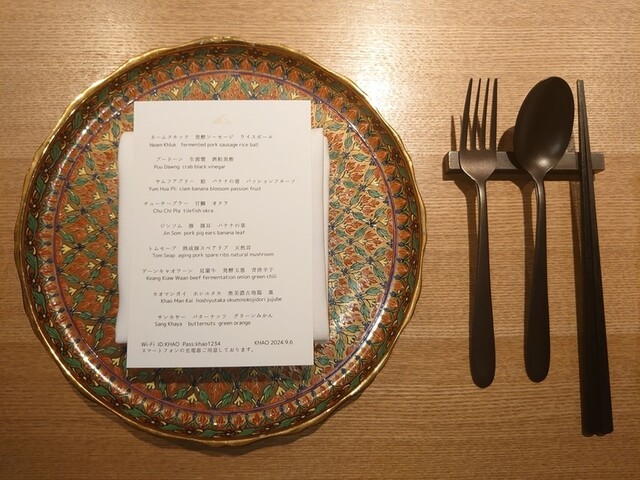 ネームクルック 発酵ソーセージ ライスボール
Neam Khluk fermented pork sausage rice ball
プードーン 生渡蟹 酒粕黒酢
Puu Dawng crab black vinegar
ヤムフアプリー 蛤 バナナの蕾 パッションフルーツ
Yum Hua Pli clam banana blossom passion fruit
チューチープラー 甘鯛 オクラ
Chu Chi Pla tilefish okra
ジンソム 豚 豚耳 バナナの葉
Jin Som pork pig ears banana leaf
トムセープ 熟成豚スペアリブ 天然茸
Tom Seap aging pork spare ribs natural mushroom
ゲーンキャオワーン 尾崎牛 発酵玉葱 青唐辛子
Keang Kiaw Waan beef fermentation onion green chili
カオマンガイ ホシユタカ 奥美濃古地鶏 棗
Khao Man Kai hoshiyutaka okuminokojidori jujube
サンカヤー バターナッツ グリーンみかん
Sang Khaya butternuts green orange
Wi-Fi ID:KHAO Pass:khao1234 KHAO 2024.9.6
スマートフォンの充電器ご用意しております。